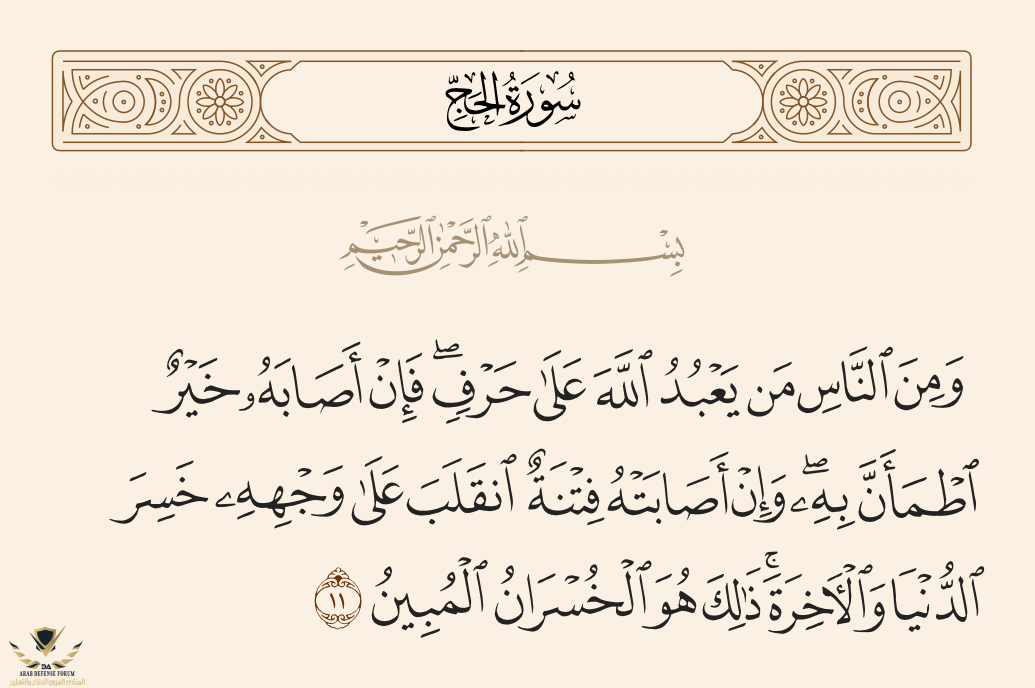 سُورَةُ الحَجِّ
بِسْمِ ٱللَّهِ ٱلرَّحْمَٰنِ ٱلرَّحِيمِ
وَمِنَ ٱلنَّاسِ مَن يَعْبُدُ ٱللَّهَ عَلَىٰ حَرْفٍۖ فَإِنْ أَصَابَهُۥ خَيْرٌ
ٱطْمَأَنَّ بِهِۦۖ وَإِنْ أَصَابَتْهُ فِتْنَةٌ ٱنقَلَبَ عَلَىٰ وَجْهِهِۦ خَسِرَ
ٱلدُّنْيَا وَٱلْأَخِرَةَۚ ذَٰلِكَ هُوَ ٱلْخُسْرَانُ ٱلْمُبِينُ ١١
DA
ARAB DEFENSE FORUM
المنتدى العربي للدفاع والتسليح